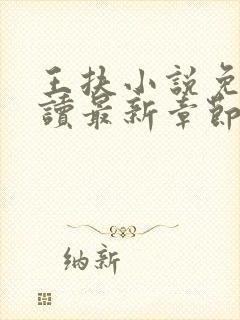 王扶小說免
讀最新章節
纳新